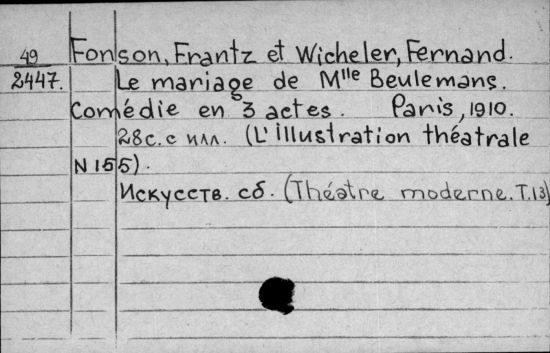 49 Fonson, Frantz et Wicheler, Fernand.
2447. Le mariage de Mlle Beulemans.
Comédie en 3 actes. Paris, 1910.
28с. с илл. (L'illustration théatrale
N 155).
Искусств. сб. (Théatre moderne. T.13)